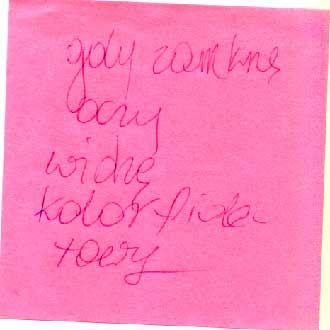 gdy zamknę
oczy
widzę
kolor fiole
towy